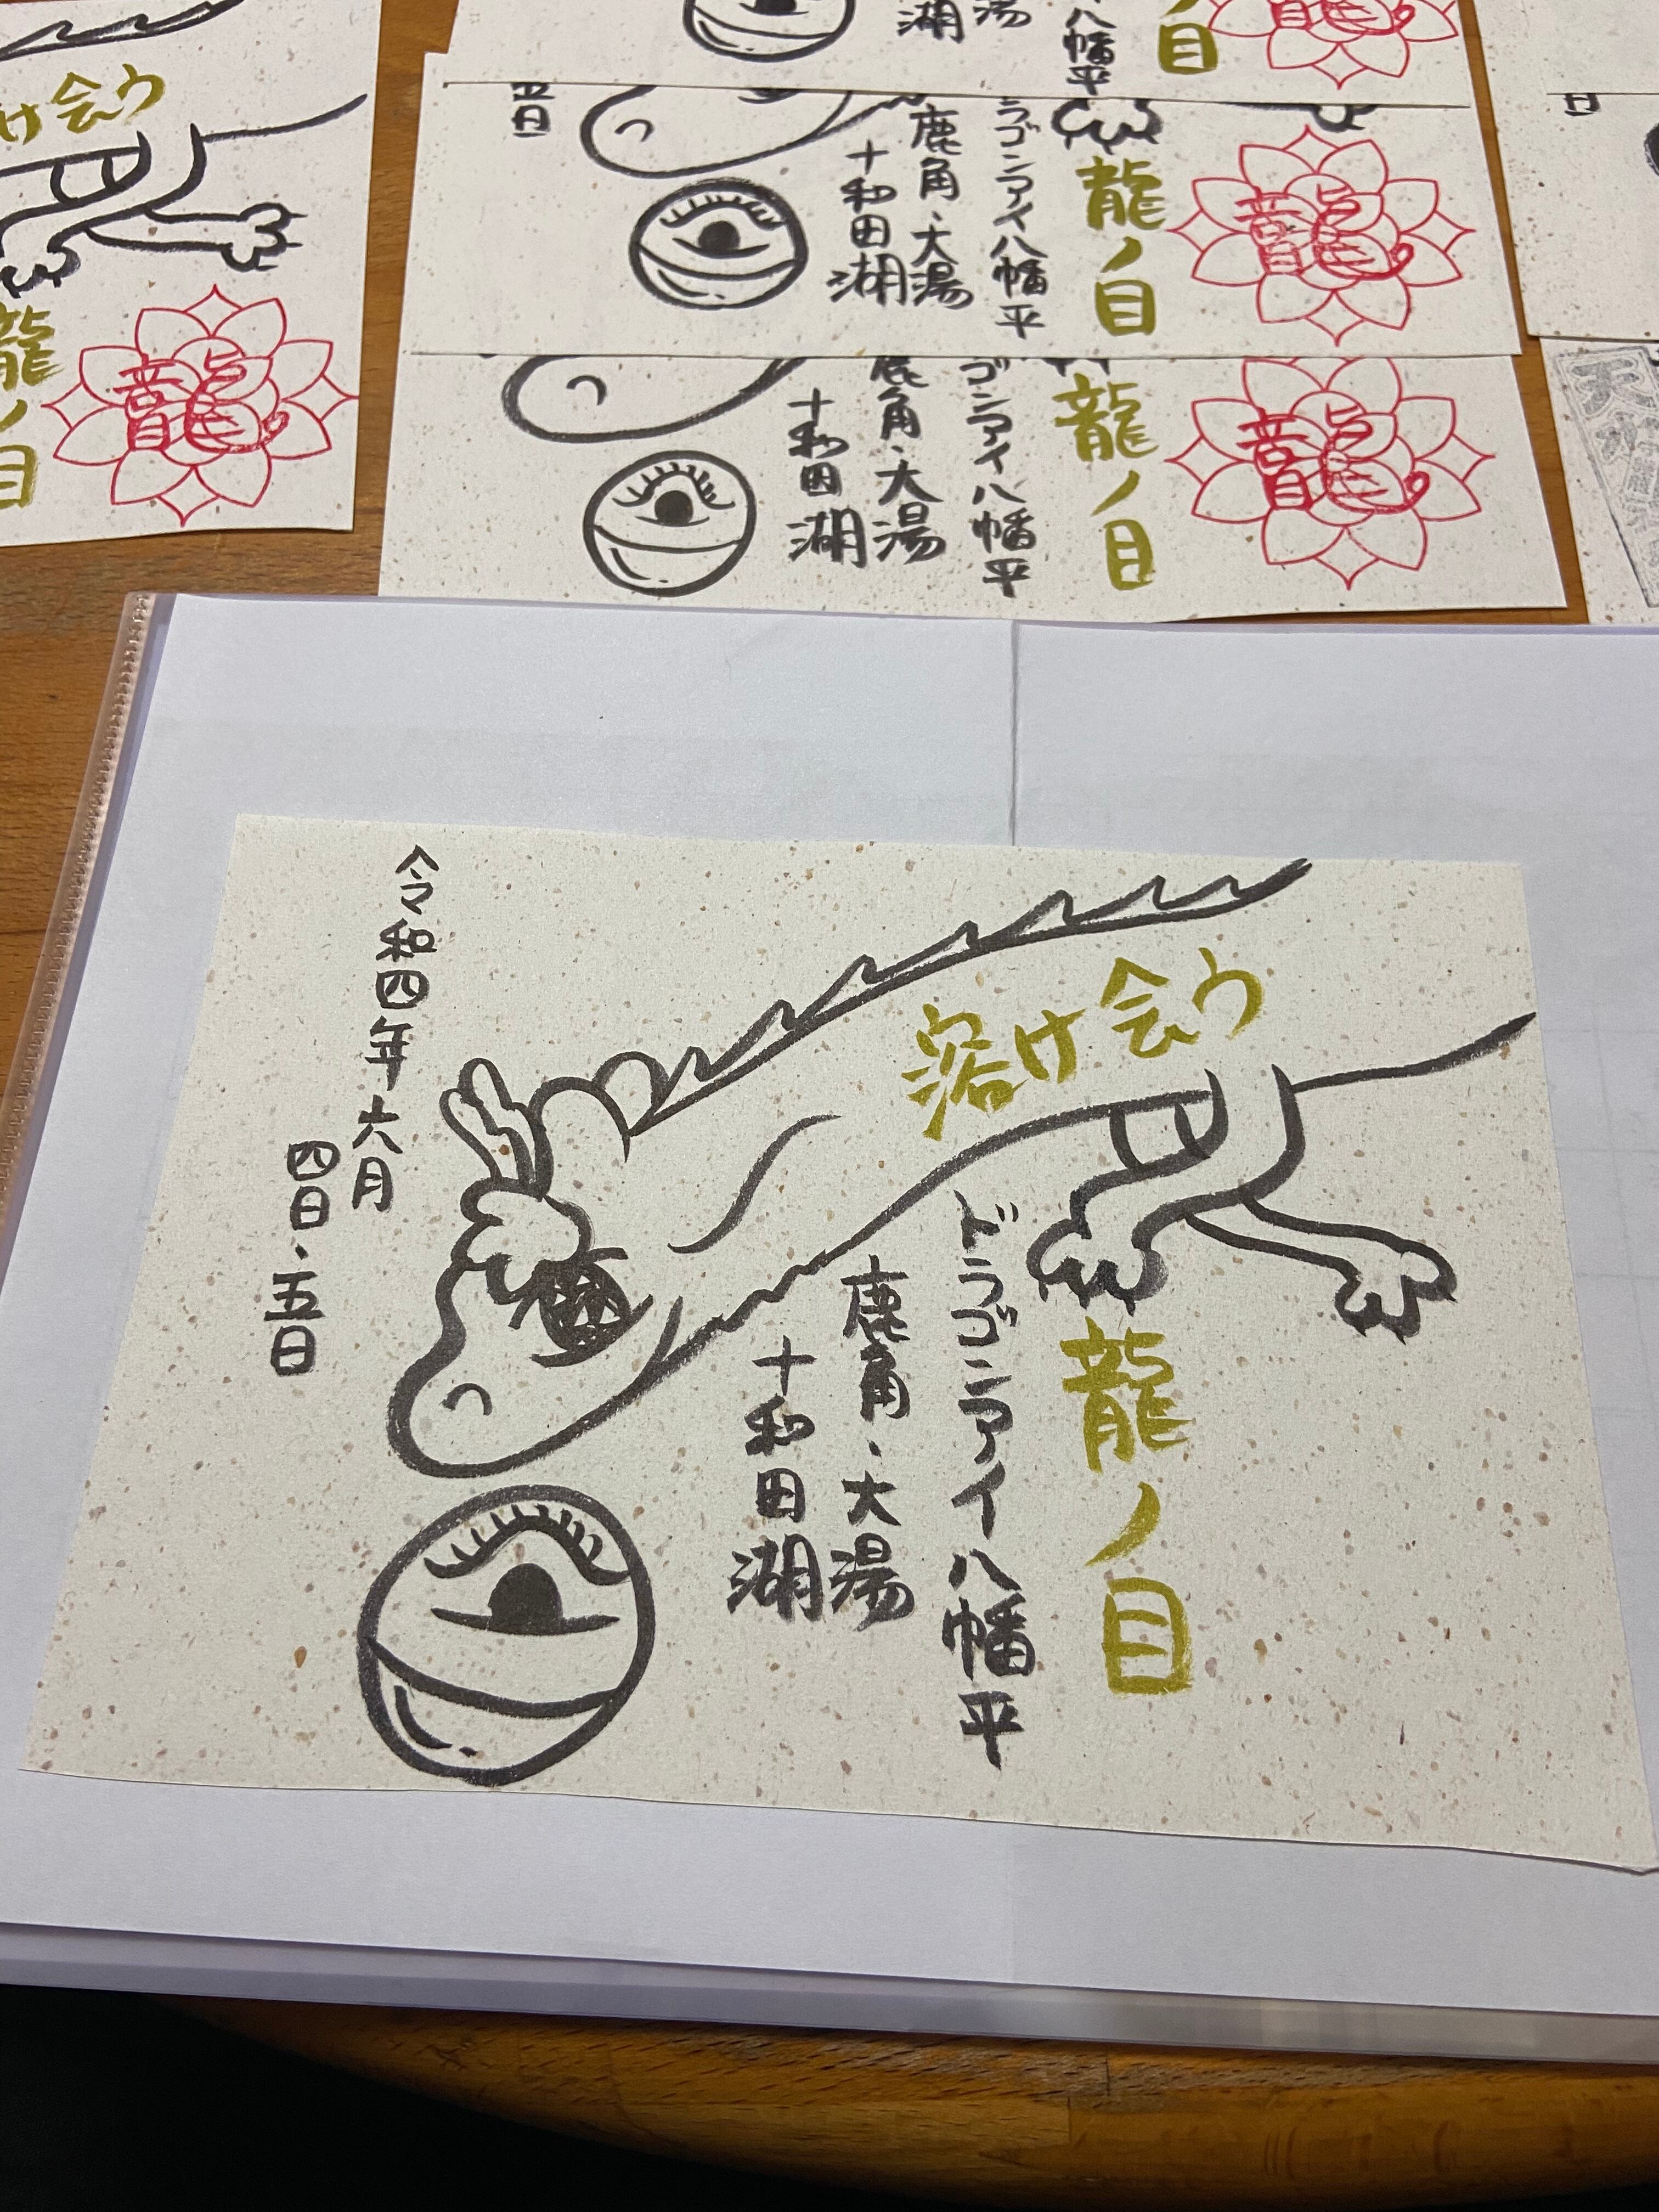 け会う
龍
ノ
目
龍
湖
湯
八幡平
ノ目
龍
五日
十和田湖
鹿角・大湯
ラゴンアイ八幡平
龍ノ目
龍
十和田湖
鹿角・大湯
ゴンアイ八幡平
龍ノ目
龍
溶け会う
龍ノ目
ドラゴンアイ八幡平
鹿角・大湯
十和田湖
令和四年六月
四日・五日